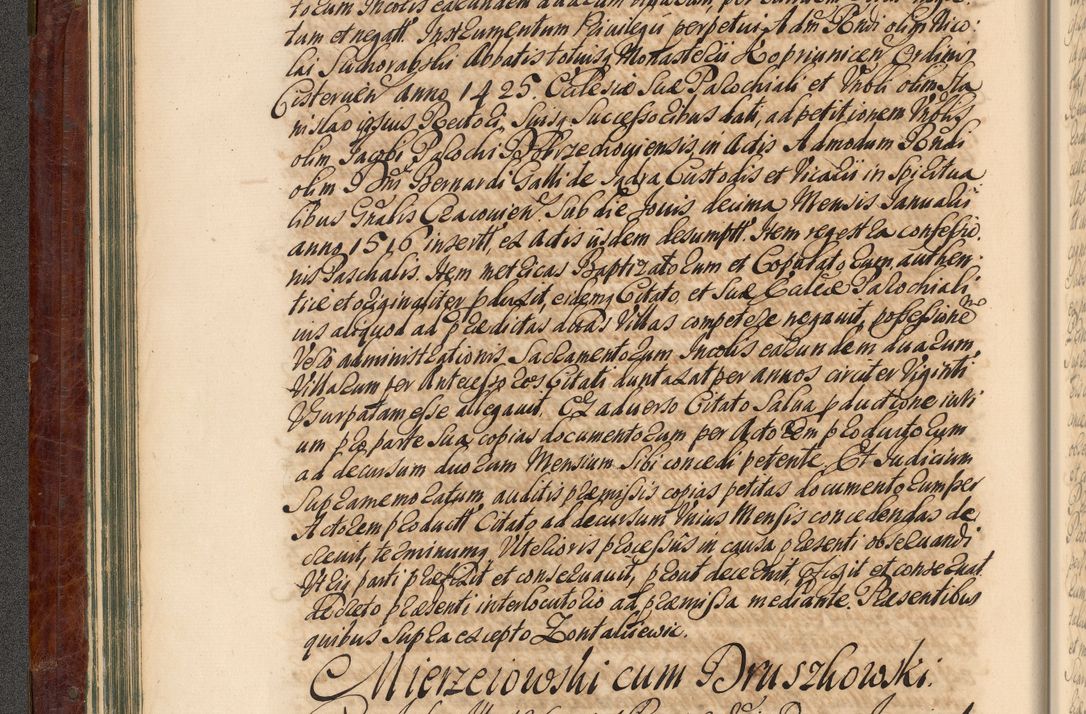 tum et negatt. Instrumentum Privilegii perpetui Adm Rndi olim Nico-
lai Suchorabski Abbatis totiusq Monasterii Koprivnicen Ordinis
Cistercien anno 1425. Ecclesiæ Suæ Parochiali et Vrbli olim Sta
nislao ipsius Rectori, Suisq Successoribus dati, ad petitionem Vrblis
olim Jacobi Parochi Dobrzechoviensis in Actis Admodum Rndi
olim D Dni Bernardi Galli de Jadra Custodis et Vicarii in Spiritua
libus Gnalis Cracovien Sub die Jovis decima Mensis Januarii
anno 1516 insertt, ex Actis iisdem desumptt. Item regestra confessio-
nis Paschalis. Item metricas Baptizatorum et Copulatorum, authen-
tice et originaliter pduxit, eidemq Citato, et Suæ Eccliæ Parochiali
ius aliquod ad prædictas duas Villas competere negavit, possessione
Vero administrationis Sacramentorum Incolis earundem duarum
Villarum per Antecessores Citati duntaxat per annos circiter Viginti
Vsurpatam esse allegavit. Ex adverso Citato Salva pductione iuri
um pro parte Sua copias documentorum per Actorem productorum
ad decursum duorum Mensium Sibi concedi petente. Et Judicium
Supramemoratum, auditis præmissis copias petitas documentorum per
Actorem productt. Citato ad decursum Vnius Mensis concedendas de
crevit, terminumq Vlterioris processus in causa præsenti observandi
Vtriq parti præfixit et conservavit, prout decernit, pfigit et conservat
decreto præsenti interlocutorio ad præmissa mediante. Præsentibus
quibus Supra excepto Zontalisewic.
Mierzeiowski cum Druszkowski.